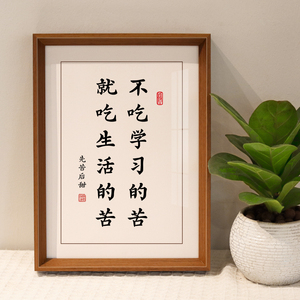 不吃学习的苦
就吃生活的苦
先苦后甜